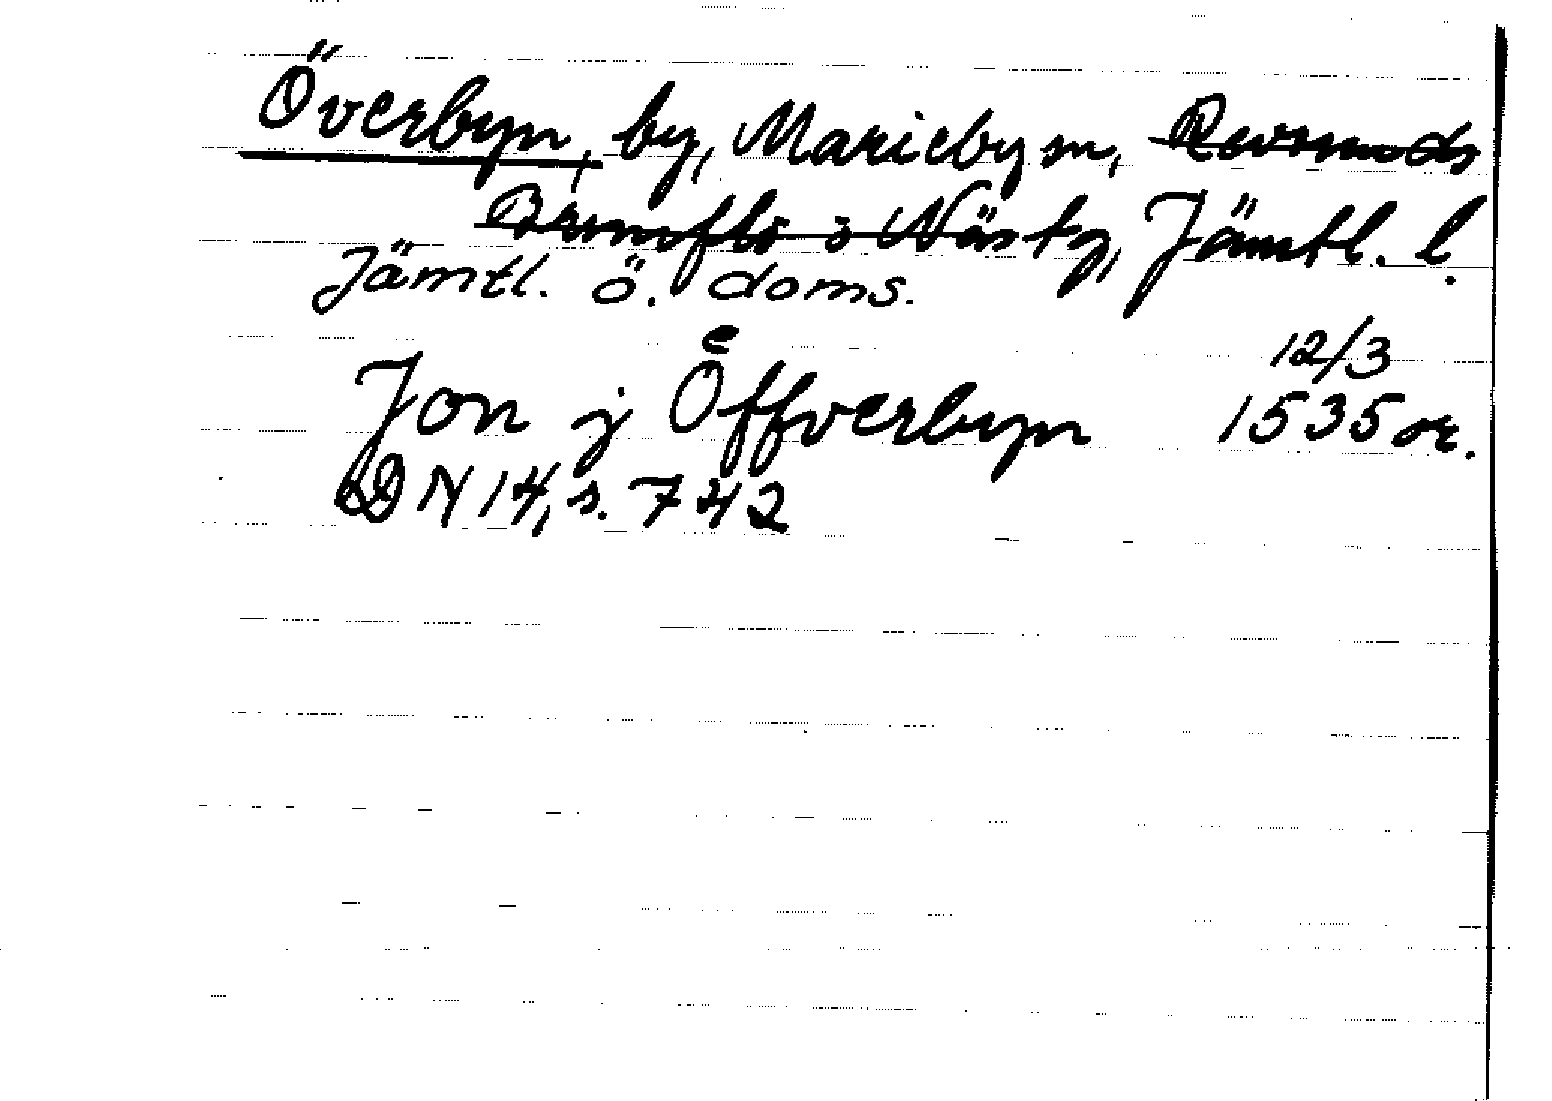 Överbyn, by, Marieby sn, Revsunds
Brunflo o Näs tg, Jämtl. l.
Jämtl. ö. doms.
12/3
Jon j Oͤffverbyn 1535 or.
DN 14, s. 742